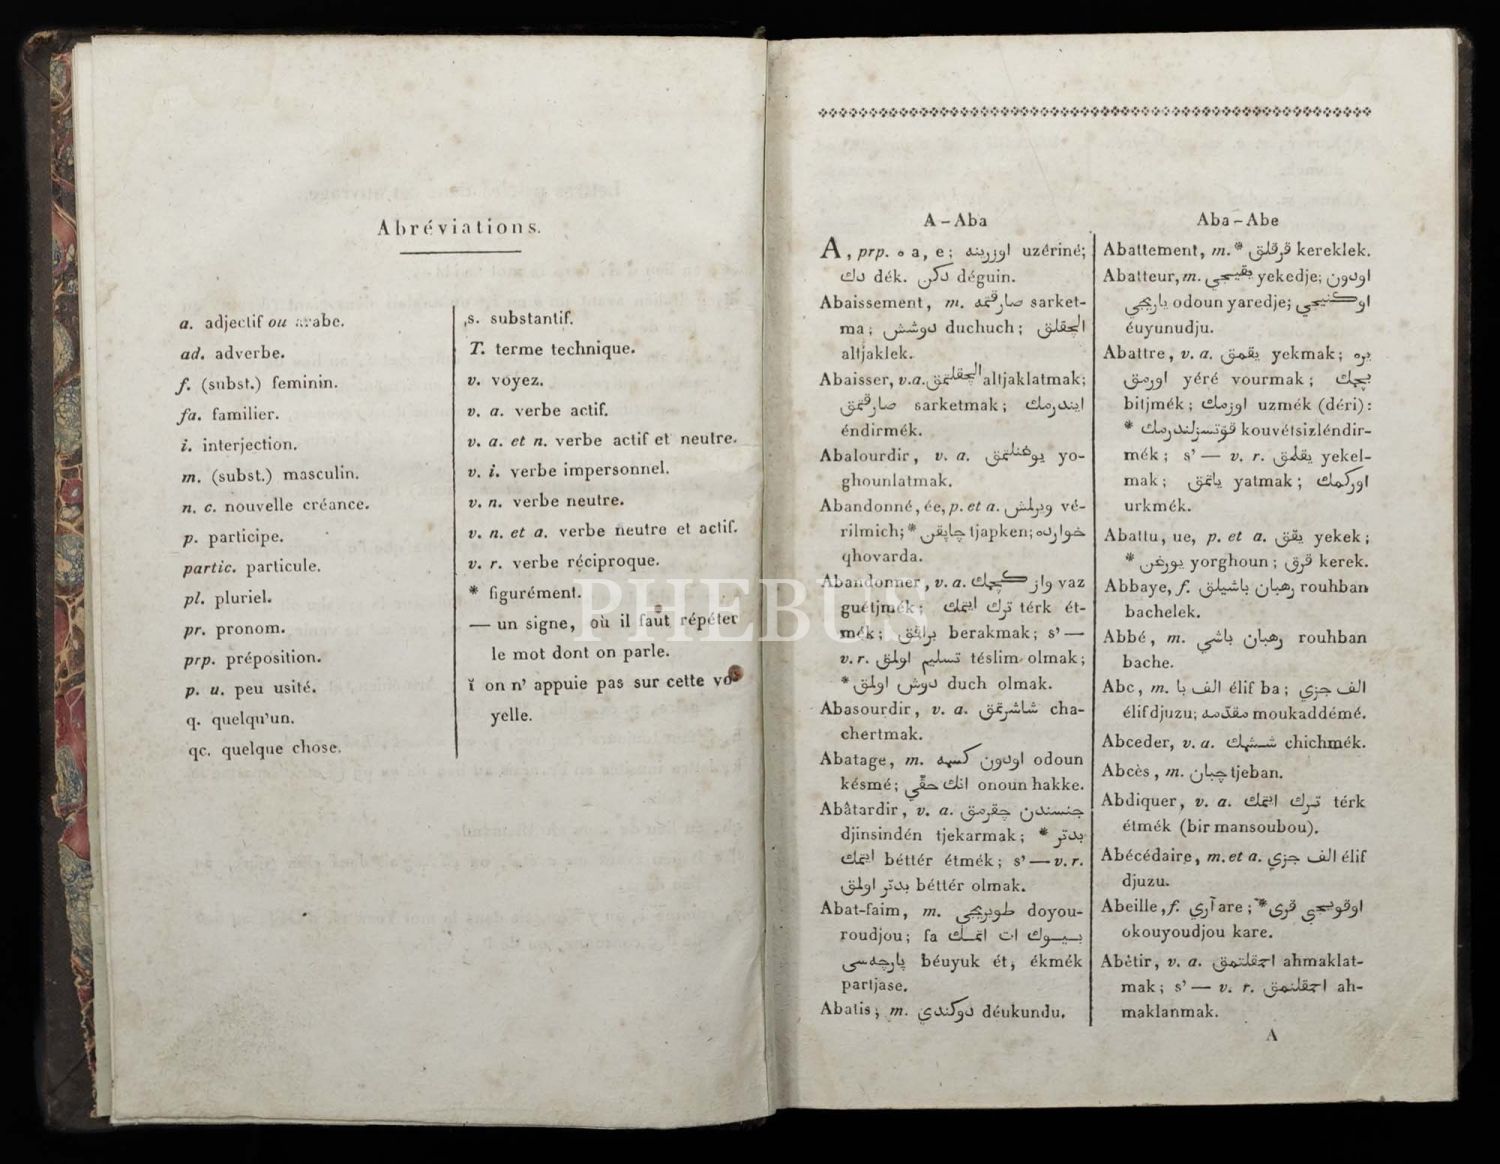 Abréviations.
a. adjectif ou arabe.
ad. adverbe.
f. (subst.) feminin.
fa. familier.
i. interjection.
m. (subst.) masculin.
n. c. nouvelle créance.
p. participe.
partic. particule.
pl. pluriel.
pr. pronom.
prp. préposition.
p. u. peu usité.
q. quelqu'un.
qc. quelque chose.
s. substantif.
T. terme technique.
v. voyez.
v. a. verbe actif.
v. a. et n. verbe actif et neutre.
v. i. verbe impersonnel.
v. n. verbe neutre.
v. n. et a. verbe neutre et actif.
v. r. verbe réciproque.
* figurément.
— un signe, où il faut répéter
le mot dont on parle.
ĭ on n' appuie pas sur cette vo
yelle.
A – Aba
A, prp. ه a, e; اوزرينه uzériné;
دك dék. دكن déguin.
Abaissement, m. صارقتمه sarket-
ma; دوشش duchuch; الچقلق
altjaklek.
Abaisser, v. a. الچقلتمق altjaklatmak;
صارقتمق sarketmak; ايندرمك
éndirmék.
Abalourdir, v. a. يوغنلتمق yo-
ghounlatmak.
Abandonné, ée, p. et a. ويرلمش vé-
rilmich; * چاپقن tjapken; خوارده
qhovarda.
Abandonner, v. a. واز كچمك vaz
guétjmék; ترك ايتمك térk ét-
mék; براقمق berakmak; s' —
v. r. تسليم اولمق téslim olmak;
* دوش اولمق duch olmak.
Abasourdir, v. a. شاشرتمق cha-
chertmak.
Abatage, m. اودون كسمه odoun
késmé; انك حقّي onoun hakke.
Abâtardir, v. a. جنسندن چقرمق
djinsindén tjekarmak; * بدتر
ايتمك béttér étmék; s' — v. r.
بدتر اولمق béttér olmak.
Abat-faim, m. طويريجي doyou-
roudjou; fa بيوك ات اتمك
پارچه‌سى béuyuk ét, ékmék
partjase.
Abatis, m. دوكندي déukundu.
Aba – Abe
Abattement, m. * قرقلق kereklek.
Abatteur, m. يقيجي yekedje; اودون
ياريجي odoun yaredje;
éuyunudju.
Abattre, v. a. يقمق yekmak; يره
اورمق yéré vourmak;
bitjmék; اوزمك uzmék (déri):
* قوّتسزلندرمك kouvétsizléndir-
mék; s' — v. r. يقلمق yekel-
mak; ياتمق yatmak; اوركمك
urkmék.
Abattu, ue, p. et a. يقق yekek;
* يورغن yorghoun; قرق kerek.
Abbaye, f. رهبان باشيلق rouhban
bachelek.
Abbé, m. رهبان باشي rouhban
bache.
Abc, m. الف با élif ba; الف جزي
élif djuzu; مقدّمه moukaddémé.
Abceder, v. a. ششمك chichmék.
Abcès, m. چبان tjeban.
Abdiquer, v. a. ترك ايتمك térk
étmék (bir mansoubou).
Abécédaire, m. et a. الف جزي élif
djuzu.
Abeille, f. آري are; * اوقويجي قرى
okouyoudjou kare.
Abêtir, v. a. احمقلتمق ahmaklat-
mak; s' — v. r. احمقلنمق ah-
maklanmak.
A
PHEBUS